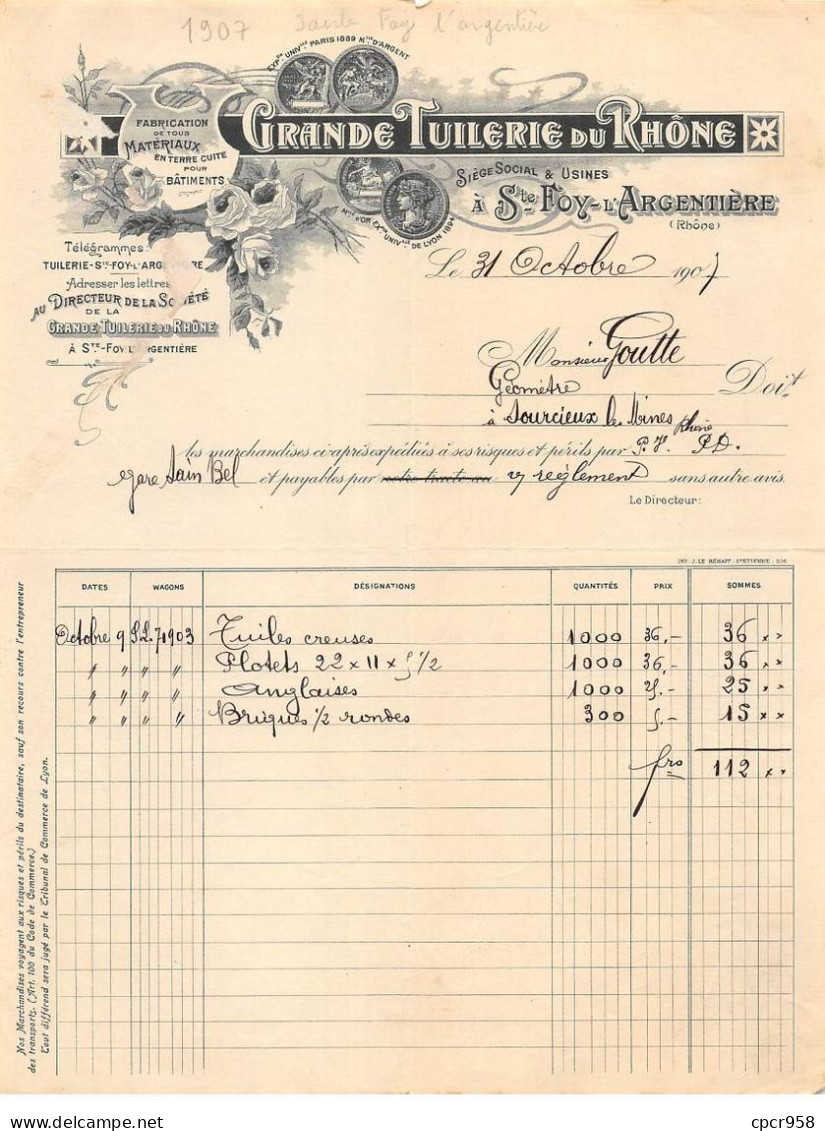 1907 Sainte Foy l'argentière
EXP.ON UNIV.LLE PARIS 1889 M.LLE D'ARGENT
FABRICATION
DE TOUS
MATÉRIAUX
EN TERRE CUITE
POUR
BÂTIMENTS
GRANDE TUILERIE DU RHÔNE
SIÈGE SOCIAL & USINES
À STE FOY-L'ARGENTIÈRE
(Rhône)
M.LLE D'OR EXP.ON UNIV.LLE DE LYON 1894
Télégrammes:
TUILERIE-STE-FOY-L'ARGENTIÈRE
Adresser les lettres
AU DIRECTEUR DE LA SOCIÉTÉ
DE LA
GRANDE TUILERIE DU RHÔNE
À STE-FOY L'ARGENTIÈRE
Le 31 Octobre 1907
Monsieur Goutte
Géomètre Doit
à Sourcieux les Mines Rhône
les marchandises ci-après expédiées à ses risques et périls par P. V. P.D.
gare Sain Bel et payables par notre traite au v/ règlement sans autre avis.
Le Directeur:
IMP. J. LE HÉNAFF. ST ETIENNE
DATES WAGONS DÉSIGNATIONS QUANTITÉS PRIX SOMMES
Octobre 9 S.L. 71903 Tuiles creuses 1000 36,- 36 " "
" " " " Plotets 22 x 11 x 5 1/2 1000 36,- 36 " "
" " " " Anglaises 1000 25,- 25 " "
" " " " Briques 1/2 rondes 300 5,- 15 " "
frs 112 " "
Nos Marchandises voyagent aux risques et périls du destinataire, sauf son recours contre l'entrepreneur
des transports. (Art. 100 du Code de Commerce.)
Tout différend sera jugé par le Tribunal de Commerce de Lyon.
cpcr958